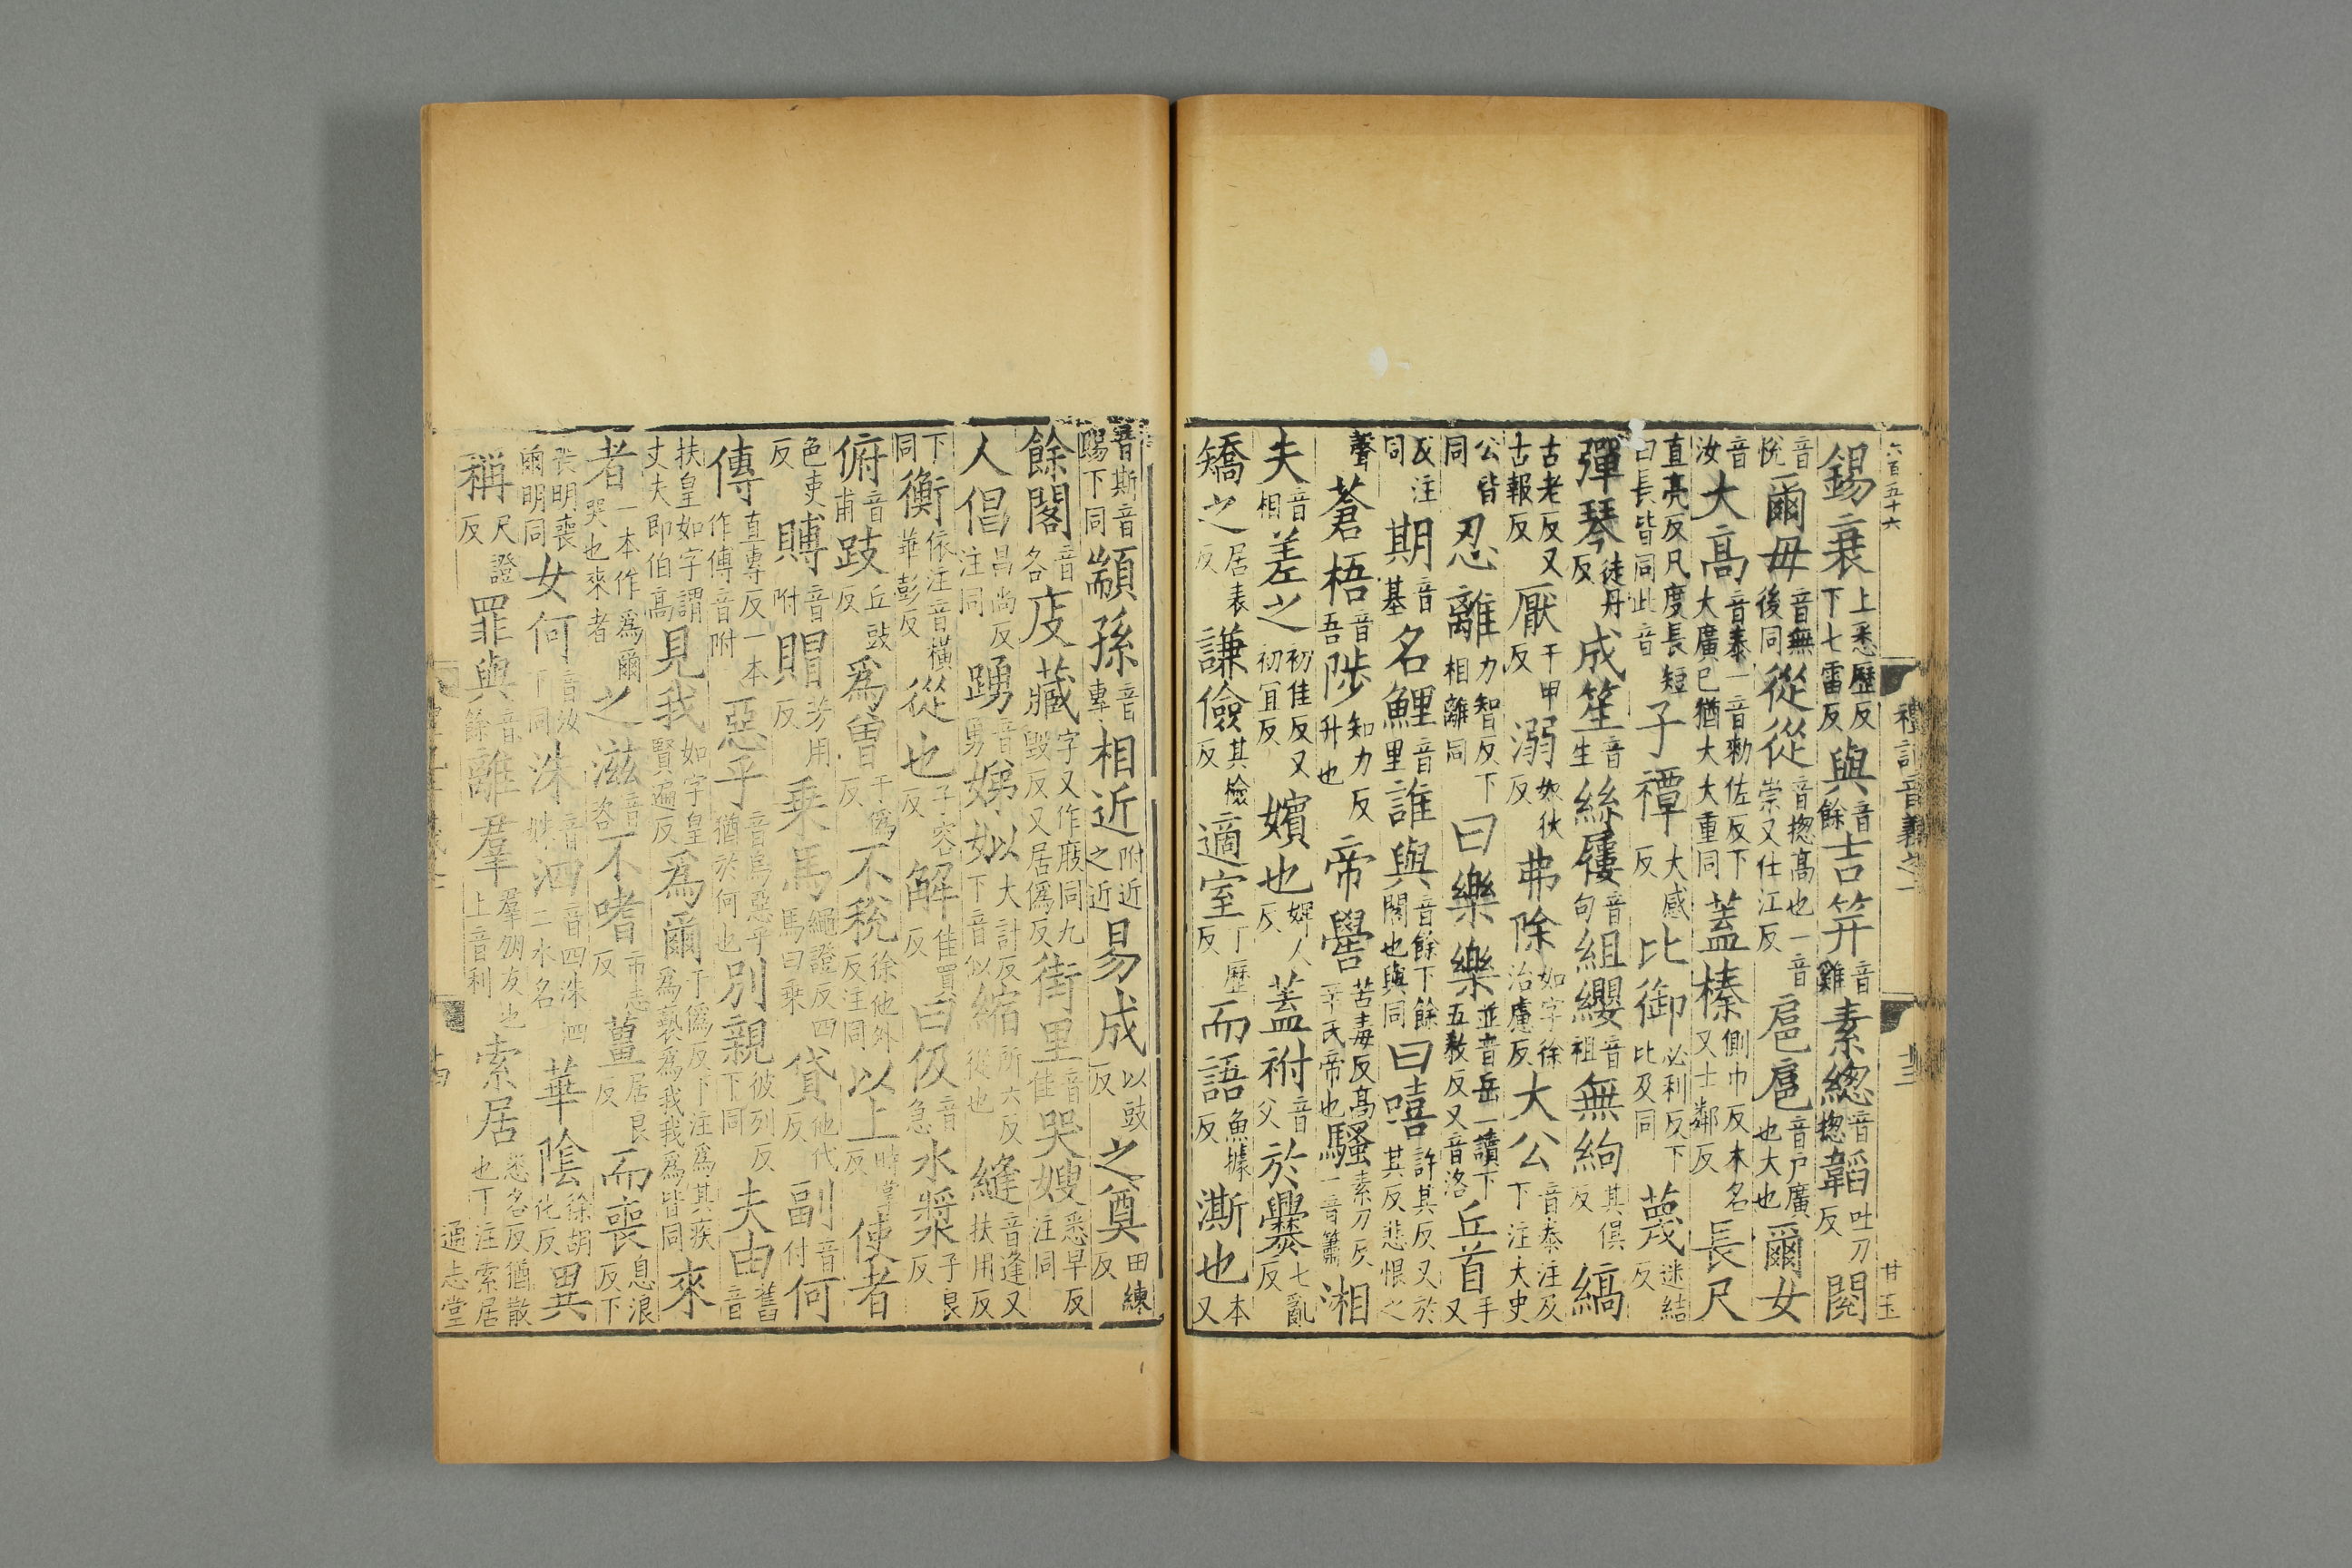 六百五十六 禮記音義之一 廿三 甘玉
錫衰上悉歷反下七雷反與音餘吉筓音雞素緫音揔韜吐刀反閱
音悅爾毋音無後同從從音揔髙也一音崇又仕江反扈扈音戸廣也大也爾女
音汝大髙音泰一音勑佐反下大廣已猶大大重同蓋榛側巾反木名又士鄰反長尺
直亮反凡度長短曰長皆同此音子禫大感反比御必利反下比及同蔑迷結反
彈琴徒丹反成笙音生絲屨音句組纓音祖無絇其俱反縞
古老反又古報反厭于甲反溺奴狄反弗除如字徐治慮反大公音泰注及下注大史
公皆同忍離力智反下相離同曰樂樂並音岳一讀下五教反又音洛丘首手又
反注同期音基名鯉音里誰與音餘下餘閣也與同曰嘻許其反又於其反悲恨之
聲蒼梧音吾陟知力反升也帝嚳苦毒反髙辛氏帝也騷素刀反一音蕭湘
夫音相差之初佳反又初宜反嬪也婢人反蓋祔音父於爨七亂反
矯之居表反謙儉其檢反適室丁歷反而語魚據反澌也本又
音斯音賜下同顓孫音專相近附近之近易成以豉反之奠田練反
餘閣音各庋藏字又作庪同九毀反又居偽反街里音佳哭嫂悉早反注同
人倡昌尚反注同踴音勇娣姒大計反下音似縮所六反從也縫音逢又扶用反
下同衡依注音橫華彭反從也子容反解佳買反曰伋音急水漿子良反
俯音甫跂丘豉反爲曾于僞反不稅徐他外反注同以上時掌反使者
色吏反賻音附賵芳用反乗馬繩證反四馬曰乗貸他代反副音付何
傅直專反一本作傅音附惡乎音烏惡乎猶於何也別親彼列反下同夫由舊音
扶皇如字謂丈夫即伯髙見我如字皇賢遍反爲爾于僞反下注爲其疾爲䙝爲我我爲皆同來
者一本作爲爾哭也來者之滋音咨不嗜市志反薑居良反而喪息浪反下
喪明喪爾明同女何音汝下同洙音殊泗音四洙泗二水名華陰徐胡化反異
稱尺證反罪與音餘離羣羣朋友也上音利索居悉各反猶散也下注索居
通志堂